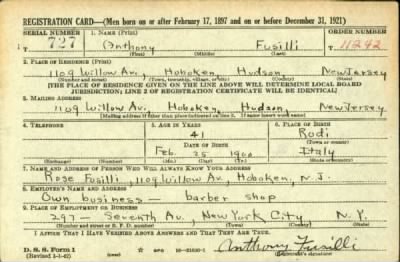 REGISTRATION CARD—(Men born on or after February 17, 1897 and on or before December 31, 1921)
SERIAL NUMBER 1. NAME (Print) ORDER NUMBER
T 727 Anthony Fusilli T 11292
(First) (Middle) (Last)
2. PLACE OF RESIDENCE (Print)
1109 Willow Av. Hoboken, Hudson New Jersey
(Number and street) (Town, township, village, or city) (County) (State)
[THE PLACE OF RESIDENCE GIVEN ON THE LINE ABOVE WILL DETERMINE LOCAL BOARD
JURISDICTION; LINE 2 OF REGISTRATION CERTIFICATE WILL BE IDENTICAL]
3. MAILING ADDRESS
1109 Willow Av. Hoboken, Hudson, New Jersey
[Mailing address if other than place indicated on line 2. If same insert word same]
4. TELEPHONE 5. AGE IN YEARS 6. PLACE OF BIRTH
41 Rodi
DATE OF BIRTH (Town or county)
Feb. 25 1900 Italy
(Exchange) (Number) (Mo.) (Day) (Yr.) (State or country)
7. NAME AND ADDRESS OF PERSON WHO WILL ALWAYS KNOW YOUR ADDRESS
Rose Fusilli, 1109 Willow Av, Hoboken, N.J.
8. EMPLOYER'S NAME AND ADDRESS
Own business — barber shop
9. PLACE OF EMPLOYMENT OR BUSINESS
297 — Seventh Av., New York City N.Y.
(Number and street or R. F. D. number) (Town) (County) (State)
I AFFIRM THAT I HAVE VERIFIED ABOVE ANSWERS AND THAT THEY ARE TRUE.
D. S. S. Form 1 GPO 16—21630-1 Anthony Fusilli
(Revised 1-1-42) (Registrant's signature)